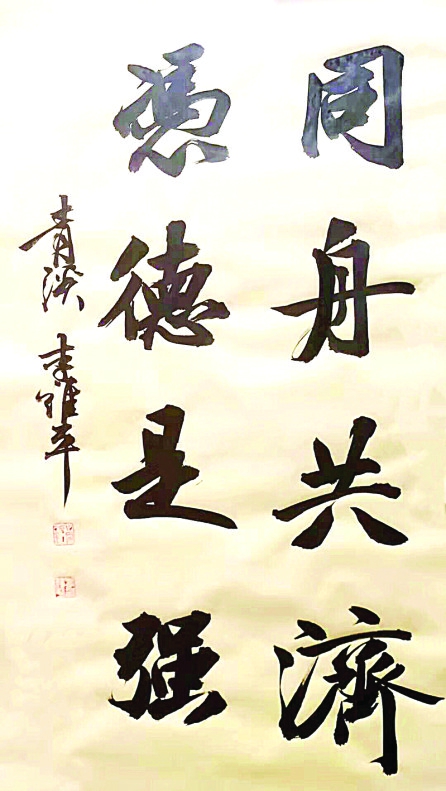 同舟共濟
憑德是强
青溪 李維平